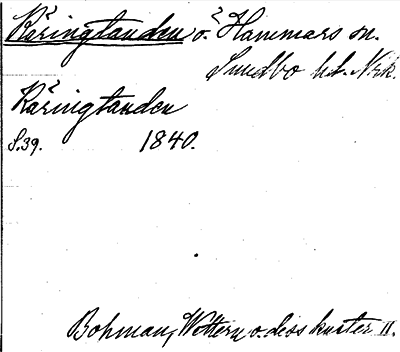 Käringtanden ö. Hammars sn.
Sundbo hd. Nrk.
Käringtanden
S.39. 1840.
Bohman, Wettern o. dess kuster II.